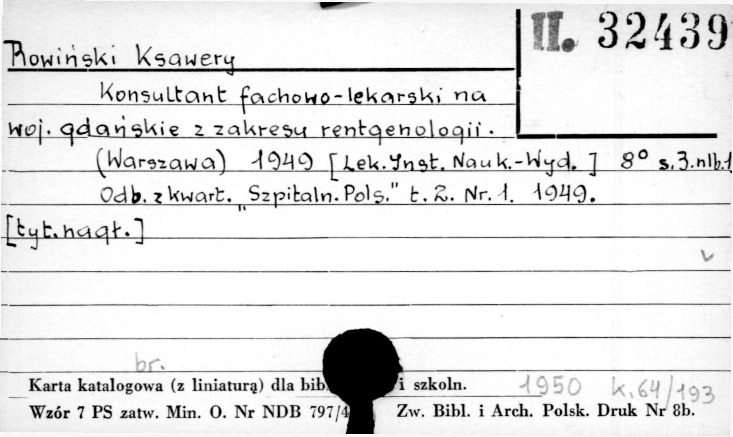 II. 32439
Rowiński Ksawery
Konsultant fachowo-lekarski na
woj. gdańskie z zakresu rentgenologii.
(Warszawa) 1949 [Lek. Inst. Nauk.-Wyd.] 8° s. 3. nlb. 1
Odb. z kwart. "Szpitaln. Pols." t. 2. Nr. 1. 1949.
[tyt. nagł.]
br.
Karta katalogowa (z liniaturą) dla bib i szkoln.
1950 k. 64/193
Wzór 7 PS zatw. Min. O. Nr NDB 797/4 Zw. Bibl. i Arch. Polsk. Druk Nr 8b.